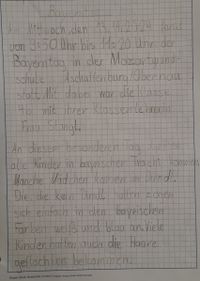 Bayerntag
Am Mittwoch, den 17.4.2024 fand
von 8:50 Uhr bis 11:20 Uhr der
Bayerntag in der Mozartgrund-
schule Aschaffenburg/Obernau
statt. Mit dabei war die Klasse
mit ihrer Klassenlehrerin
Frau Stangl.
An diesem besonderen Tag
alle Kinder in bayrischer Tracht kommen.
Manche Mädchen kamen im Dirndl.
Die, die kein Dirndl hatten zogen
sich einfach in den bayrischen
Farben weiß und blau an. Viele
Kinder hatten auch die Haare
geflochten bekommen.